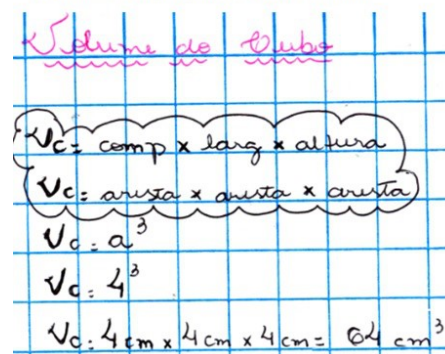 Volume do Cubo
Vc = comp x larg x altura
Vc = aresta x aresta x aresta
Vc = a³
Vc = 4³
Vc = 4 cm x 4 cm x 4 cm = 64 cm³